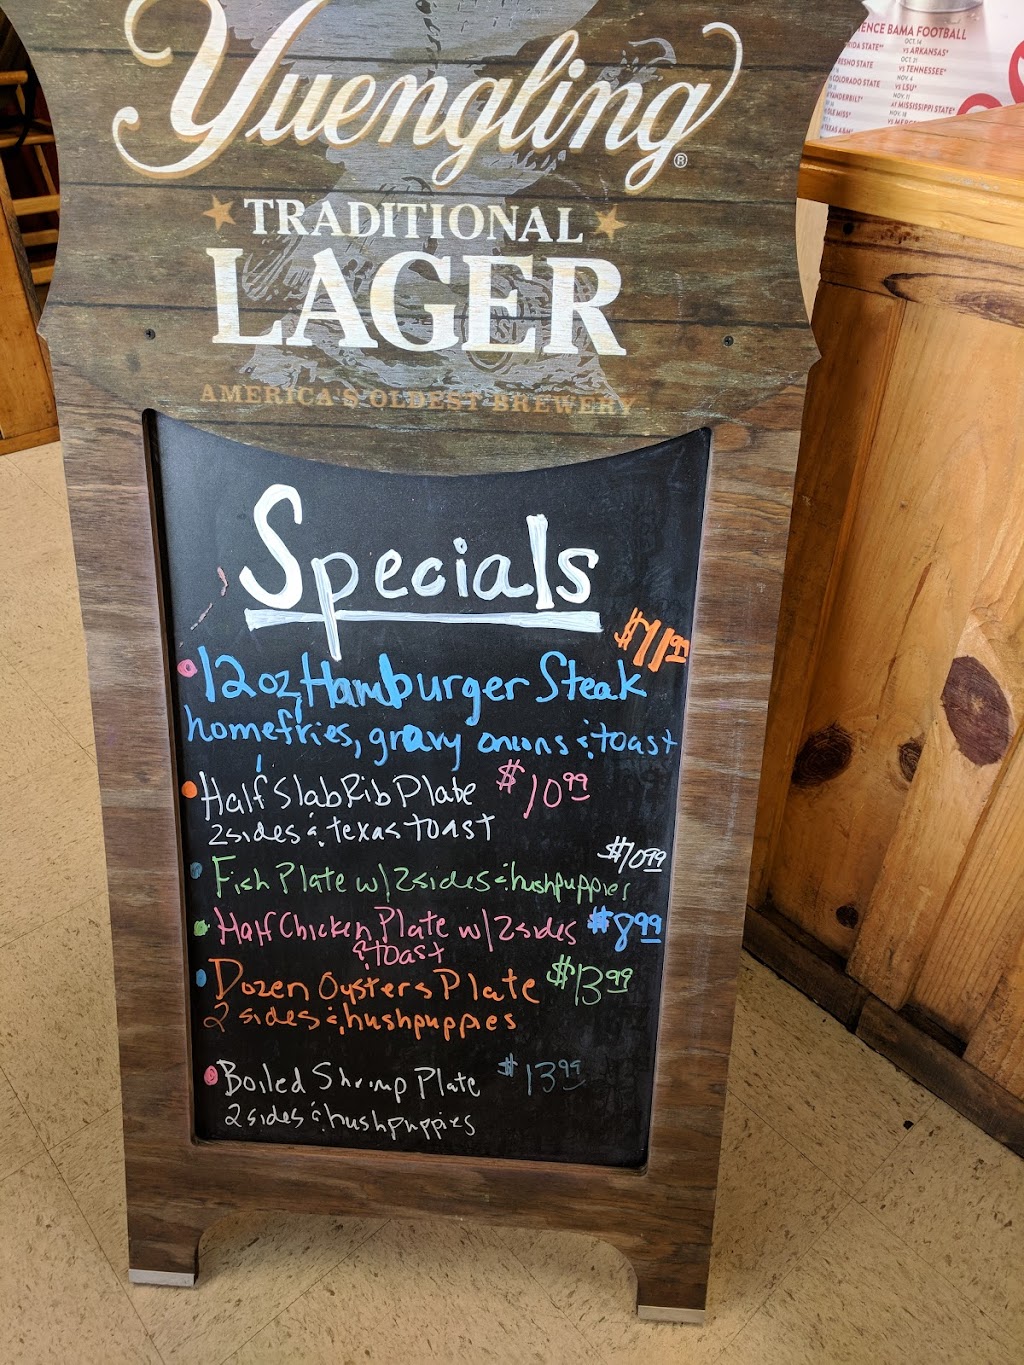 Yuengling®
TRADITIONAL
LAGER
AMERICA'S OLDEST BREWERY
Specials
$11.99
12oz Hamburger Steak
homefries, gravy onions & toast
Half Slab Rib Plate $10.99
2 sides & texas toast
$10.99
Fish Plate w/ 2 sides & hushpuppies
Half Chicken Plate w/ 2 sides $8.99
& toast
Dozen Oysters Plate $13.99
2 sides & hushpuppies
Boiled Shrimp Plate $13.99
2 sides & hushpuppies
BAMA FOOTBALL
OCT. 14
vs ARKANSAS*
OCT. 21
FRESNO STATE vs TENNESSEE*
NOV. 4
COLORADO STATE vs LSU*
NOV. 11
VANDERBILT* AT MISSISSIPPI STATE*
NOV. 18
OLE MISS*
TEXAS A&M*